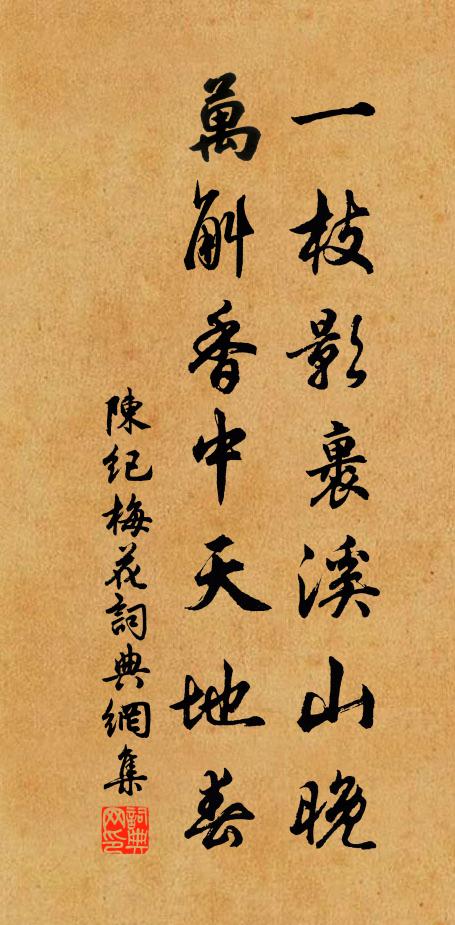 一枝影裹溪山晚
萬斛香中天地春
陳紀梅花詞典網集
詞典網印